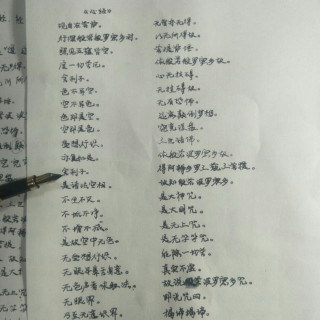 《心经》
观自在菩萨。
行深般若波罗蜜多时。
照见五蕴皆空。
度一切苦厄。
舍利子。
色不异空。
空不异色。
色即是空。
空即是色。
受想行识。
亦复如是。
舍利子。
是诸法空相。
不生不灭。
不垢不净。
不增不减。
是故空中无色。
无受想行识。
无眼耳鼻舌身意。
无色声香味触法。
无眼界。
乃至无意识界。
无智亦无得。
以无所得故。
菩提萨埵。
依般若波罗蜜多故。
心无挂碍。
无挂碍故。
无有恐怖。
远离颠倒梦想。
究竟涅槃。
三世诸佛。
依般若波罗蜜多故。
得阿耨多罗三藐三菩提。
故知般若波罗蜜多。
是大神咒。
是大明咒。
是无上咒。
是无等等咒。
能除一切苦。
真实不虚。
故说般若波罗蜜多咒。
即说咒曰。
揭谛揭谛。